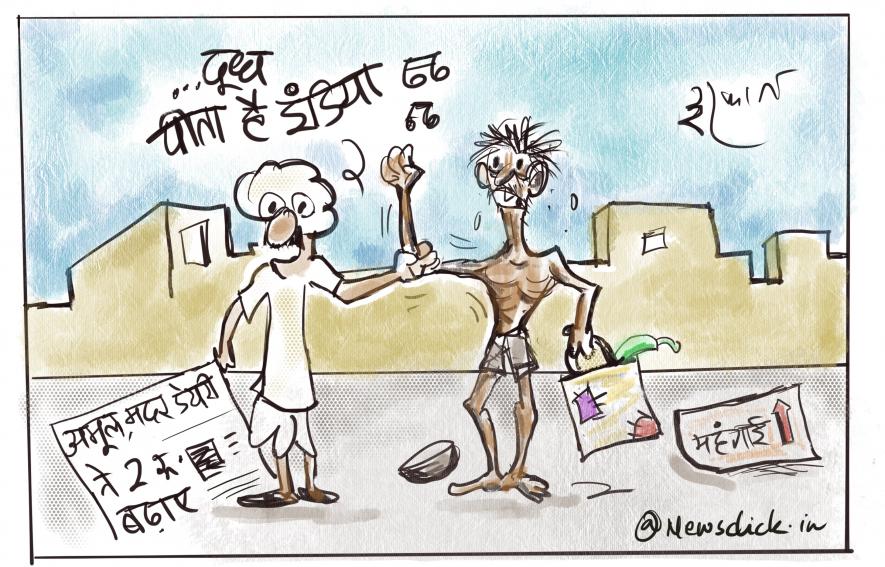 ...दूध
पीता है इंडिया
इरफ़ान
अमूल, मदर डेयरी
ने 2 रु.
बढ़ाए
महंगाई
@Newsclick.in